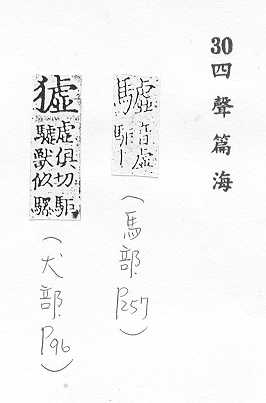 30四聲篇海
驉
音虛
駏丨
(馬部.P257)
𤢓
虛俱切駏
驉獸似騾
(犬部.P96)